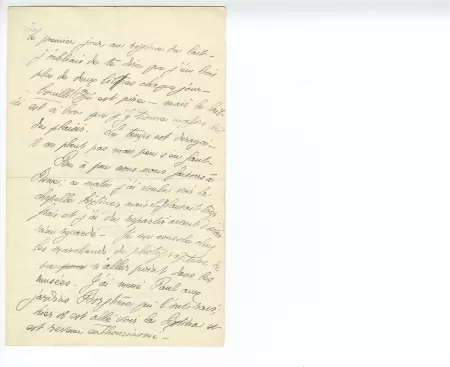 le premier jour au régime du lait -
j'oubliais de te dire que j'en bois
plus de deux litres chaque jour -
bouilli qui est pire - mais le lait
est si bon que j'y trouve
du plaisir. Le temps est dérangé -
il ne pleut pas mais peu s'en faut -
Peu à peu nous nous faisons à
Rome ; ce matin j'ai voulu voir la
chapelle Sixtine, mais il faisait trop
et j'ai dû repartir avant d'avoir
rien regardé - Je me console chez
les marchands de photographies de
n'aller point dans les
musées. J'ai mené Paul aux
jardins Borghèse qui l'ont ravi,
hier il est allé voir la Sixtine et
est revenu enthousiasmé -